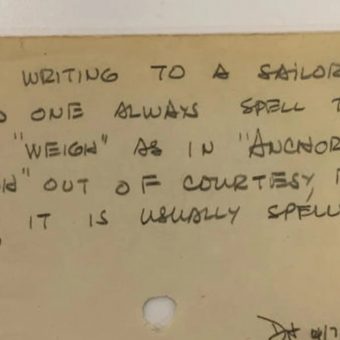 WRITING TO A SAILOR
ONE ALWAYS SPELL
"WEIGH" AS IN "ANCHOR
OUT OF COURTESY,
IT IS USUALLY